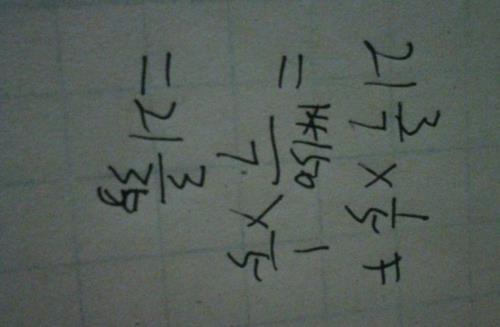 21 3/7 × 1/5
= 150/7 × 1/5
= 21 3/35